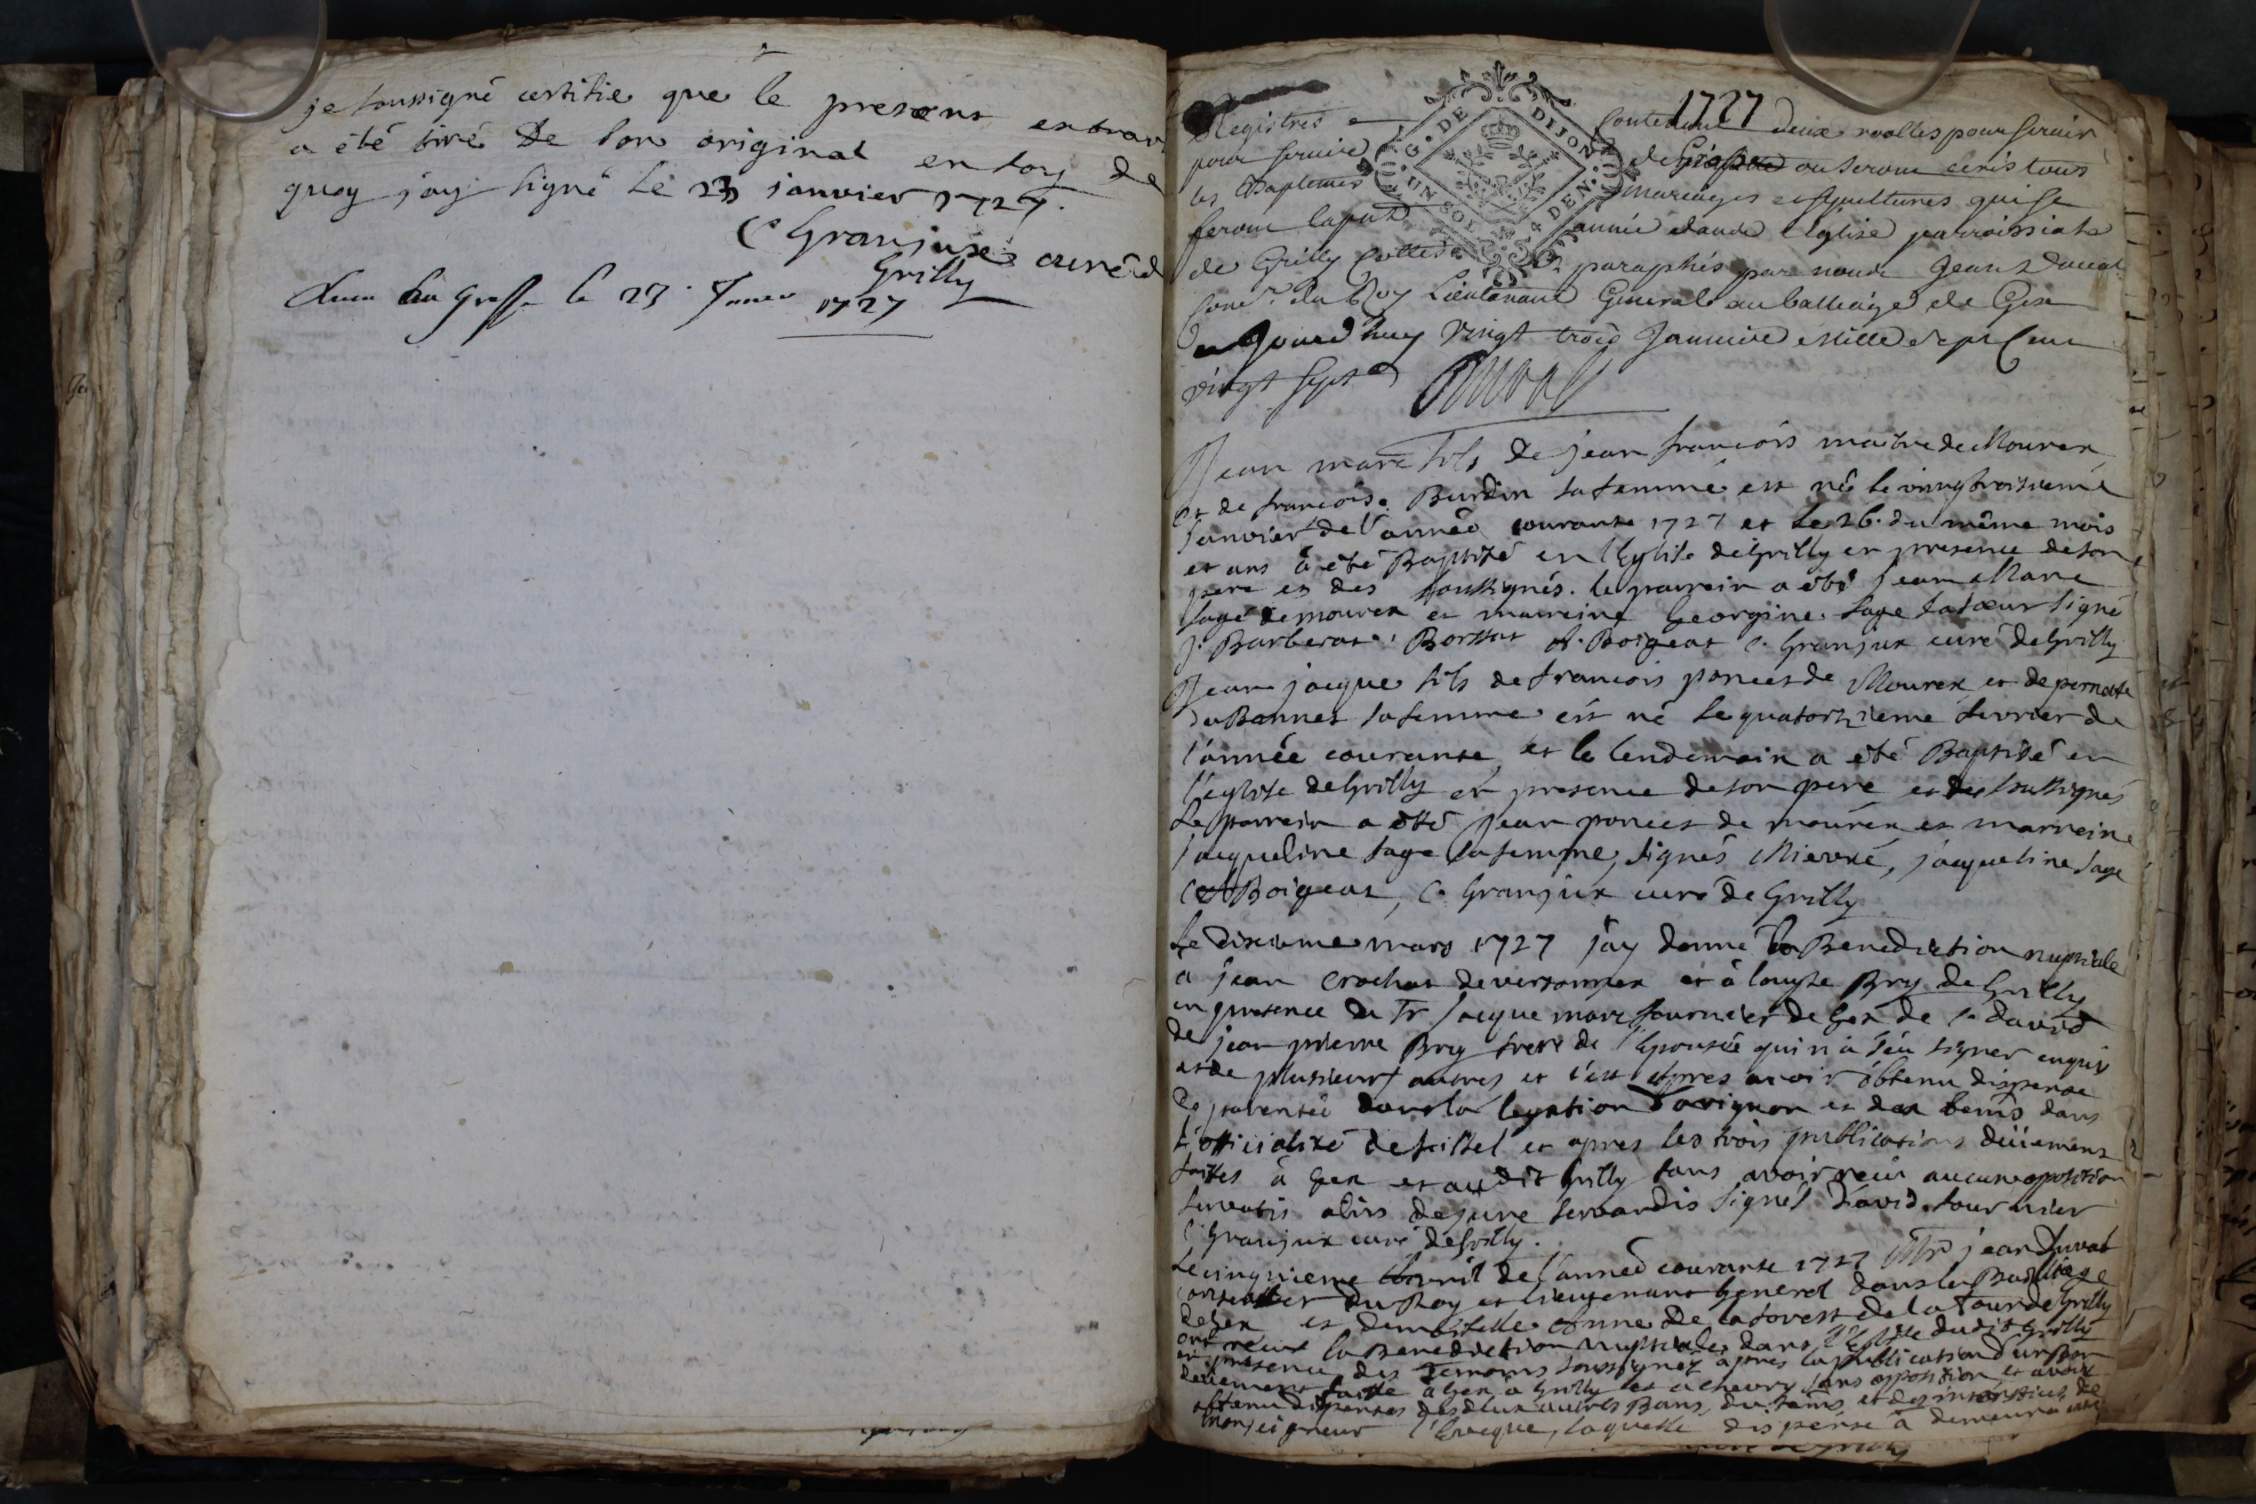 je soussigné certifie que le present extrait
a été tiré de son original en foy de
quoy j'ay signé le 23 janvier 1727.
C Granjux curé de
Grilly
du Greffe le 23 1727
1727
G. DE DIJON
UN SOL 4 DEN.
Registres contenant deux roolles pour servir
pour servire de ou seront ecris tous
les Baptemes mariages et sepultures qui se
feront année dans l'eglise parroissiale
de Grilly Cottés paraphés par nous Jean Duval
Cone.r du Roy Lieutenant General au balliage de Gex
Jourd'huy vingt trois Janvier Mille sept Cent
vingt sept Duval
Jean marc fils de jean francois maitre de Mourex
et de francoise Burdin sa femme est né le vingtroisieme
janvier de l'année courante 1727 et le 26. du même mois
et ans a été Baptisé en l'Eglise de Grilly en presence de son
pere et des soussignés. le parrein a été jean Marc
sage de mourex et marreine Georgine sage sa sœur signé
J. Barberat. Borssat Boigeat C. Granjux curé de Grilly
Jean jacque fils de francois poncet de Mourex et de pernette
duBonnet sa femme est né le quatorzieme fevrier de
l'année courante et le lendemain a été Baptisé en
l'eglise de Grilly en presence de son pere et des soussignés
Le parrein a été jean poncet de mourex et marreine
jacqueline sage sa femme, signés Mievre, jacqueline sage
Boigeat, C. Granjux curé de Grilly
Le dixieme mars 1727 j'ay donné la Benediction nuptiale
a jean Crochat de versonnex et à louyse Bry de Grilly
en presence du Sr jacque marc fournier de Gex de s. david
de jean pierre Bry frere de l'Epousée qui n'a sçu signer enquis
et de plusieurs autres et c'est apres avoir obtenu dispense
de parentée dans la legation d'avignon et des bans dans
l'officialité de seissel et apres les trois publications düement
faittes à Gex et audit Grilly sans avoir reçu aucune opposition
servatis aliis de jure servandis signés David fournier
C Granjux curé de Grilly.
Le cinquieme Avril de l'année courante 1727 jean Duval
conseiller du Roy et lieutenant general dans le Bailliage
de Gex et demoiselle Anne de laforest de la Tour de Grilly
ont reçut la Benediction nuptiale dans l'Eglise dudit Grilly
en presence des Temoins soussignez apres la publication d'un Ban
deüement faitte à Gex, à Grilly et a chevry sans opposition et avoir
obtenu dispenses des deux autres Bans, du tems et des interstices de
Monseigneur l'Eveque, laquelle dispense à demeuré